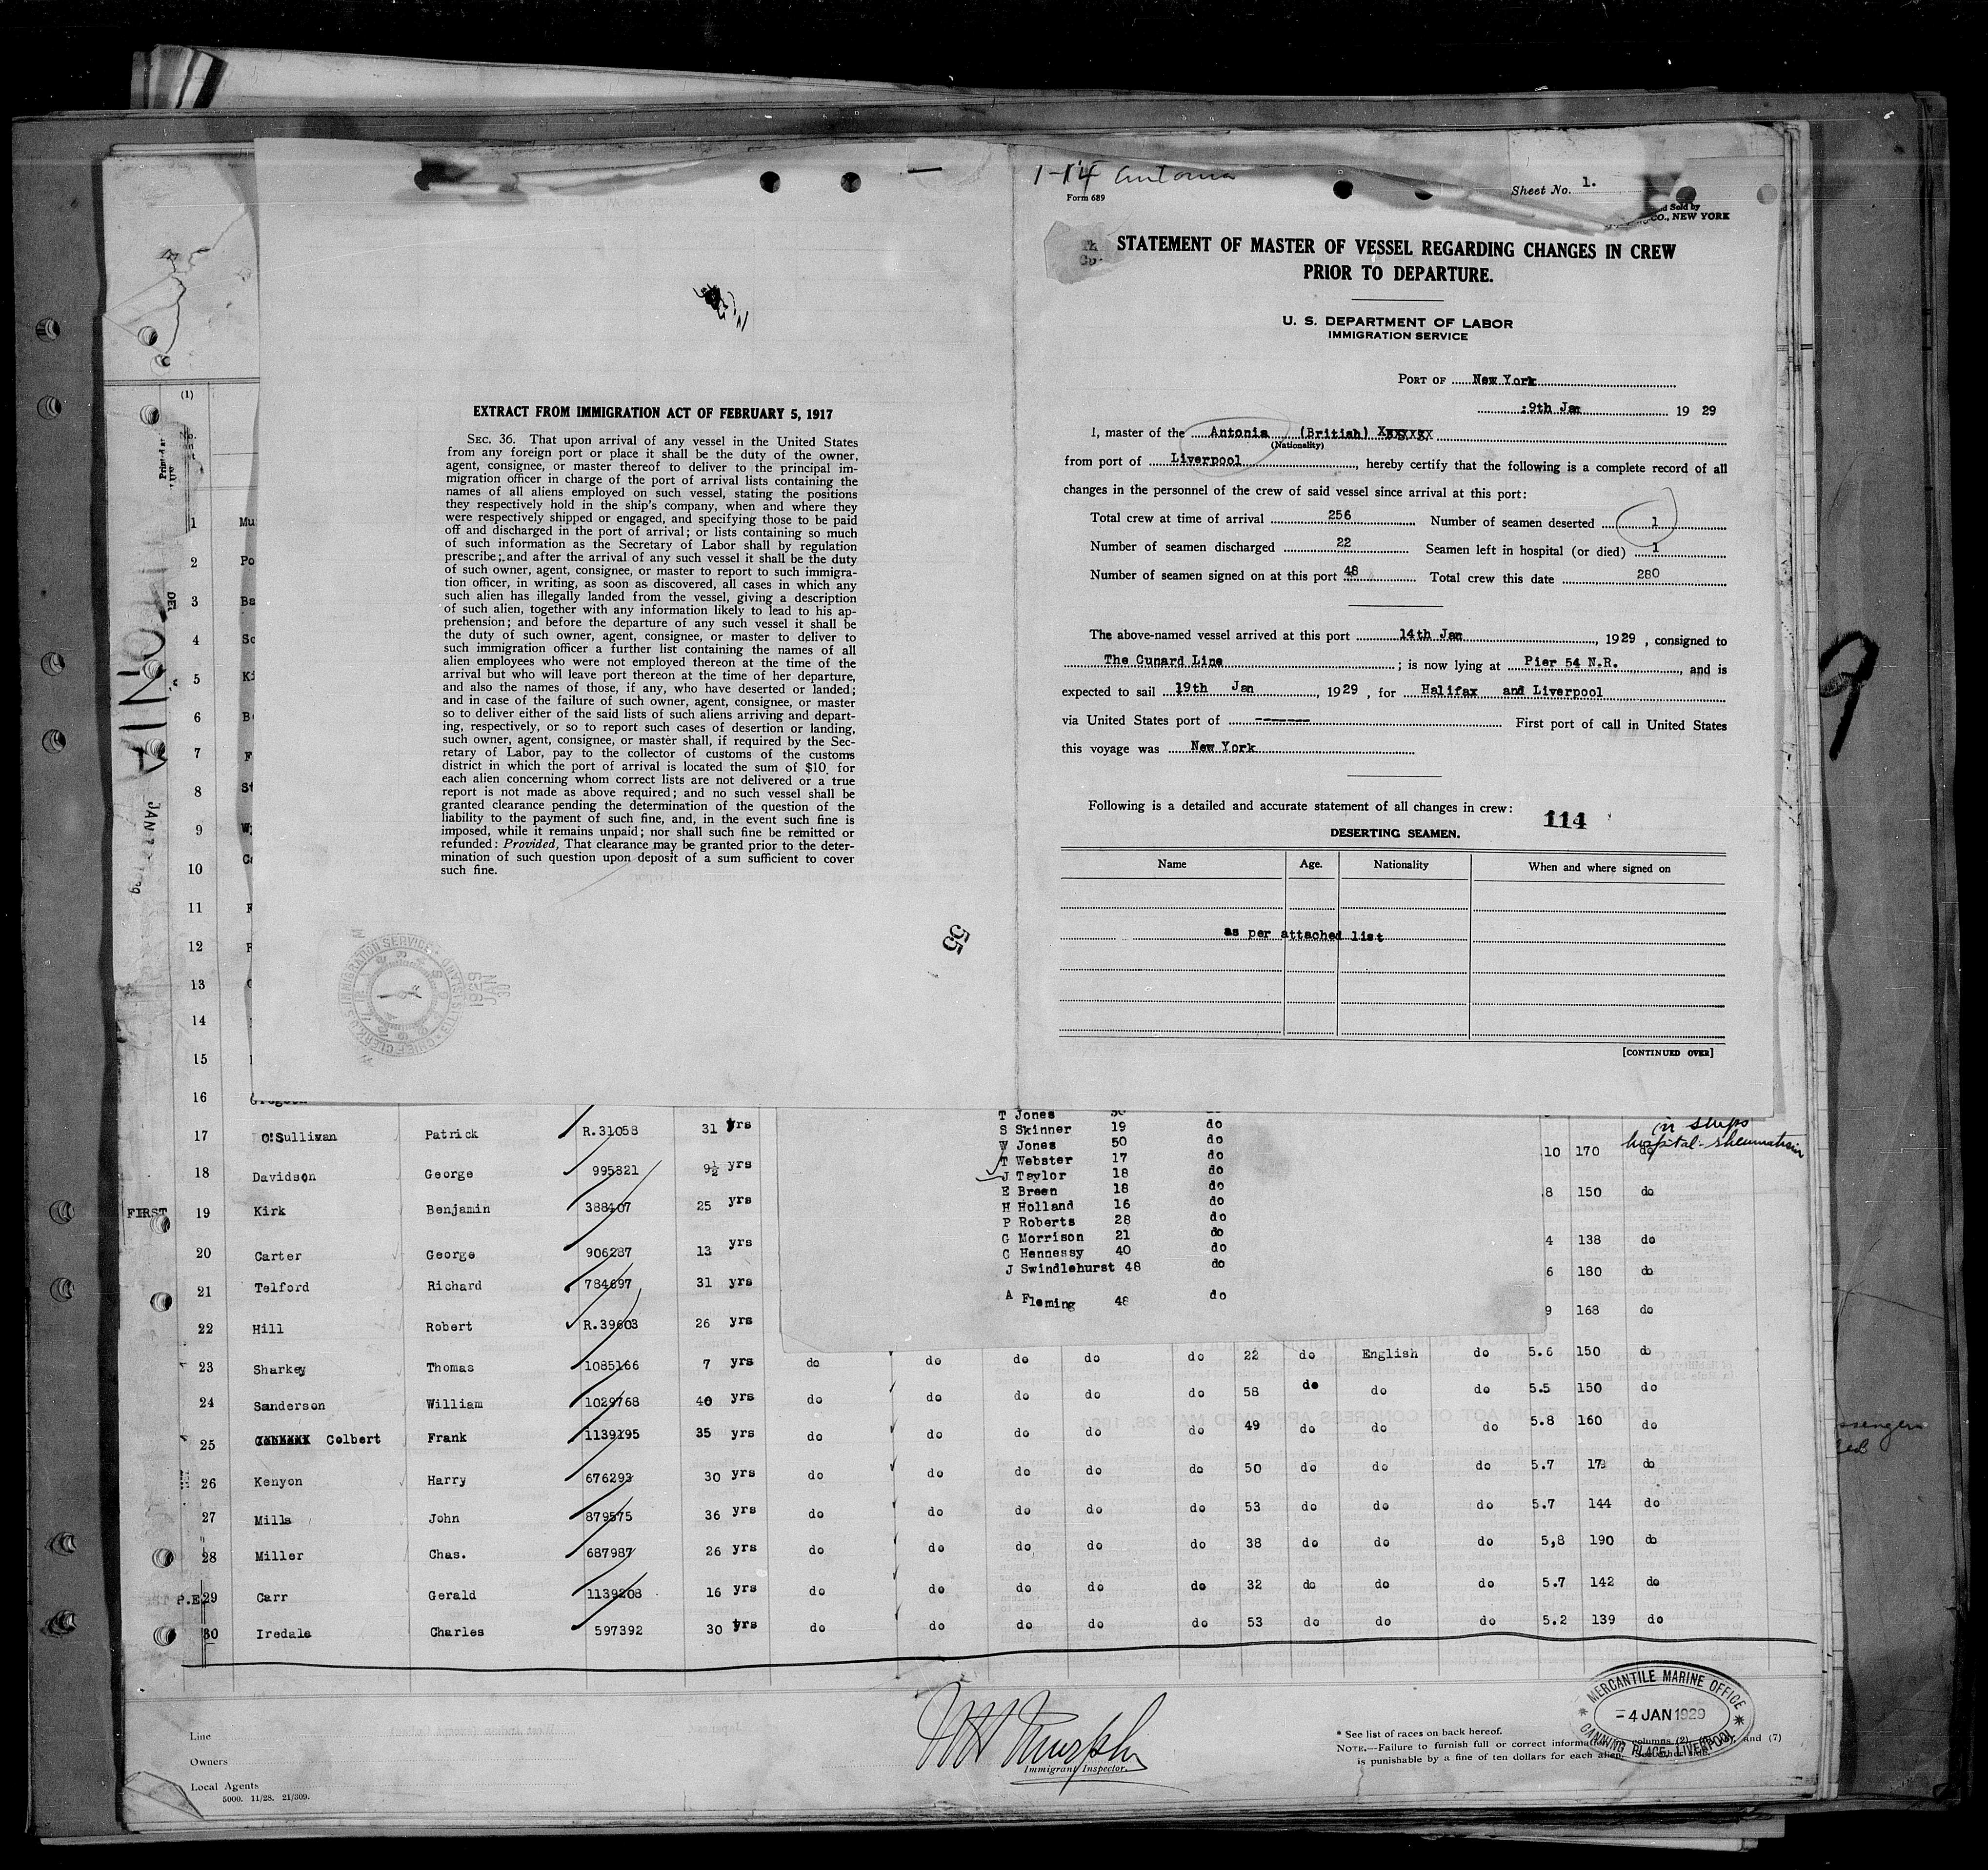 EXTRACT FROM IMMIGRATION ACT OF FEBRUARY 5, 1917
SEC. 36. That upon arrival of any vessel in the United States
from any foreign port or place it shall be the duty of the owner,
agent, consignee, or master thereof to deliver to the principal im-
migration officer in charge of the port of arrival lists containing the
names of all aliens employed on such vessel, stating the positions
they respectively hold in the ship's company, when and where they
were respectively shipped or engaged, and specifying those to be paid
off and discharged in the port of arrival; or lists containing so much
of such information as the Secretary of Labor shall by regulation
prescribe; and after the arrival of any such vessel it shall be the duty
of such owner, agent, consignee, or master to report to such immigra-
tion officer, in writing, as soon as discovered, all cases in which any
such alien has illegally landed from the vessel, giving a description
of such alien, together with any information likely to lead to his ap-
prehension; and before the departure of any such vessel it shall be
the duty of such owner, agent, consignee, or master to deliver to
such immigration officer a further list containing the names of all
alien employees who were not employed thereon at the time of the
arrival but who will leave port thereon at the time of her departure,
and also the names of those, if any, who have deserted or landed;
and in case of the failure of such owner, agent, consignee, or master
so to deliver either of the said lists of such aliens arriving and depart-
ing, respectively, or so to report such cases of desertion or landing,
such owner, agent, consignee, or master shall, if required by the Sec-
retary of Labor, pay to the collector of customs of the customs
district in which the port of arrival is located the sum of $10 for
each alien concerning whom correct lists are not delivered or a true
report is not made as above required; and no such vessel shall be
granted clearance pending the determination of the question of the
liability to the payment of such fine, and, in the event such fine is
imposed, while it remains unpaid; nor shall such fine be remitted or
refunded: Provided, That clearance may be granted prior to the deter-
mination of such question upon deposit of a sum sufficient to cover
such fine.
55
1-14 Antonia
Form 689
Sheet No. 1.
Sold by
CO., NEW YORK
STATEMENT OF MASTER OF VESSEL REGARDING CHANGES IN CREW
PRIOR TO DEPARTURE.
U. S. DEPARTMENT OF LABOR
IMMIGRATION SERVICE
PORT OF New York
19th Jan 19 29
I, master of the Antonia (British)
(Nationality)
from port of Liverpool, hereby certify that the following is a complete record of all
changes in the personnel of the crew of said vessel since arrival at this port:
Total crew at time of arrival 256 Number of seamen deserted 1
Number of seamen discharged 22 Seamen left in hospital (or died) 1
Number of seamen signed on at this port 48 Total crew this date 280
The above-named vessel arrived at this port 14th Jan, 1929, consigned to
The Cunard Line; is now lying at Pier 54 N.R., and is
expected to sail 19th Jan, 1929, for Halifax and Liverpool
via United States port of ------- First port of call in United States
this voyage was New York
Following is a detailed and accurate statement of all changes in crew:
114
DESERTING SEAMEN.
Name Age. Nationality When and where signed on
as per attached list
[CONTINUED OVER]
T Jones do
S Skinner 19 do
W Jones 50 do
T Webster 17 do
J Taylor 18 do
E Breen 18 do
H Holland 16 do
P Roberts 28 do
G Morrison 21 do
C Hennessy 40 do
J Swindlehurst 48 do
A Fleming 48 do
(1)
1 Mu
2 Po
3 Ba
4 Sc
5 Ki
6 B
7 F
8 St
9 W
10
11
12
13
14
15
16
17 O'Sullivan Patrick R.31058 31 yrs 10 170 do
in ships
hospital - rheumatism
18 Davidson George 995821 9½ yrs 8 150 do
FIRST 19 Kirk Benjamin 388407 25 yrs 4 138 do
20 Carter George 906287 13 yrs 6 180 do
21 Telford Richard 784697 31 yrs 9 168 do
22 Hill Robert R.39603 26 yrs
23 Sharkey Thomas 1085166 7 yrs do do do do do 22 do English do 5.6 150 do
24 Sanderson William 1029768 40 yrs do do do do do 58 do do do 5.5 150 do
25 Colbert Frank 1139195 35 yrs do do do do do 49 do do do 5.8 160 do
26 Kenyon Harry 676293 30 yrs do do do do do 50 do do do 5.7 173 do
27 Mills John 879575 36 yrs do do do do do 53 do do do 5.7 144 do
28 Miller Chas. 687987 26 yrs do do do do do 38 do do do 5,8 190 do
P.E. 29 Carr Gerald 1139208 16 yrs do do do do do 32 do do do 5.7 142 do
30 Iredale Charles 597392 30 yrs do do do do do 53 do do do 5.2 139 do
Line
Owners
Local Agents
5000. 11/28. 21/309.
Immigrant Inspector.
* See list of races on back hereof.
NOTE.—Failure to furnish full or correct information columns (2), and (7)
is punishable by a fine of ten dollars for each alien.
MERCANTILE MARINE OFFICE
-4 JAN 1929
CANNING PLACE, LIVERPOOL